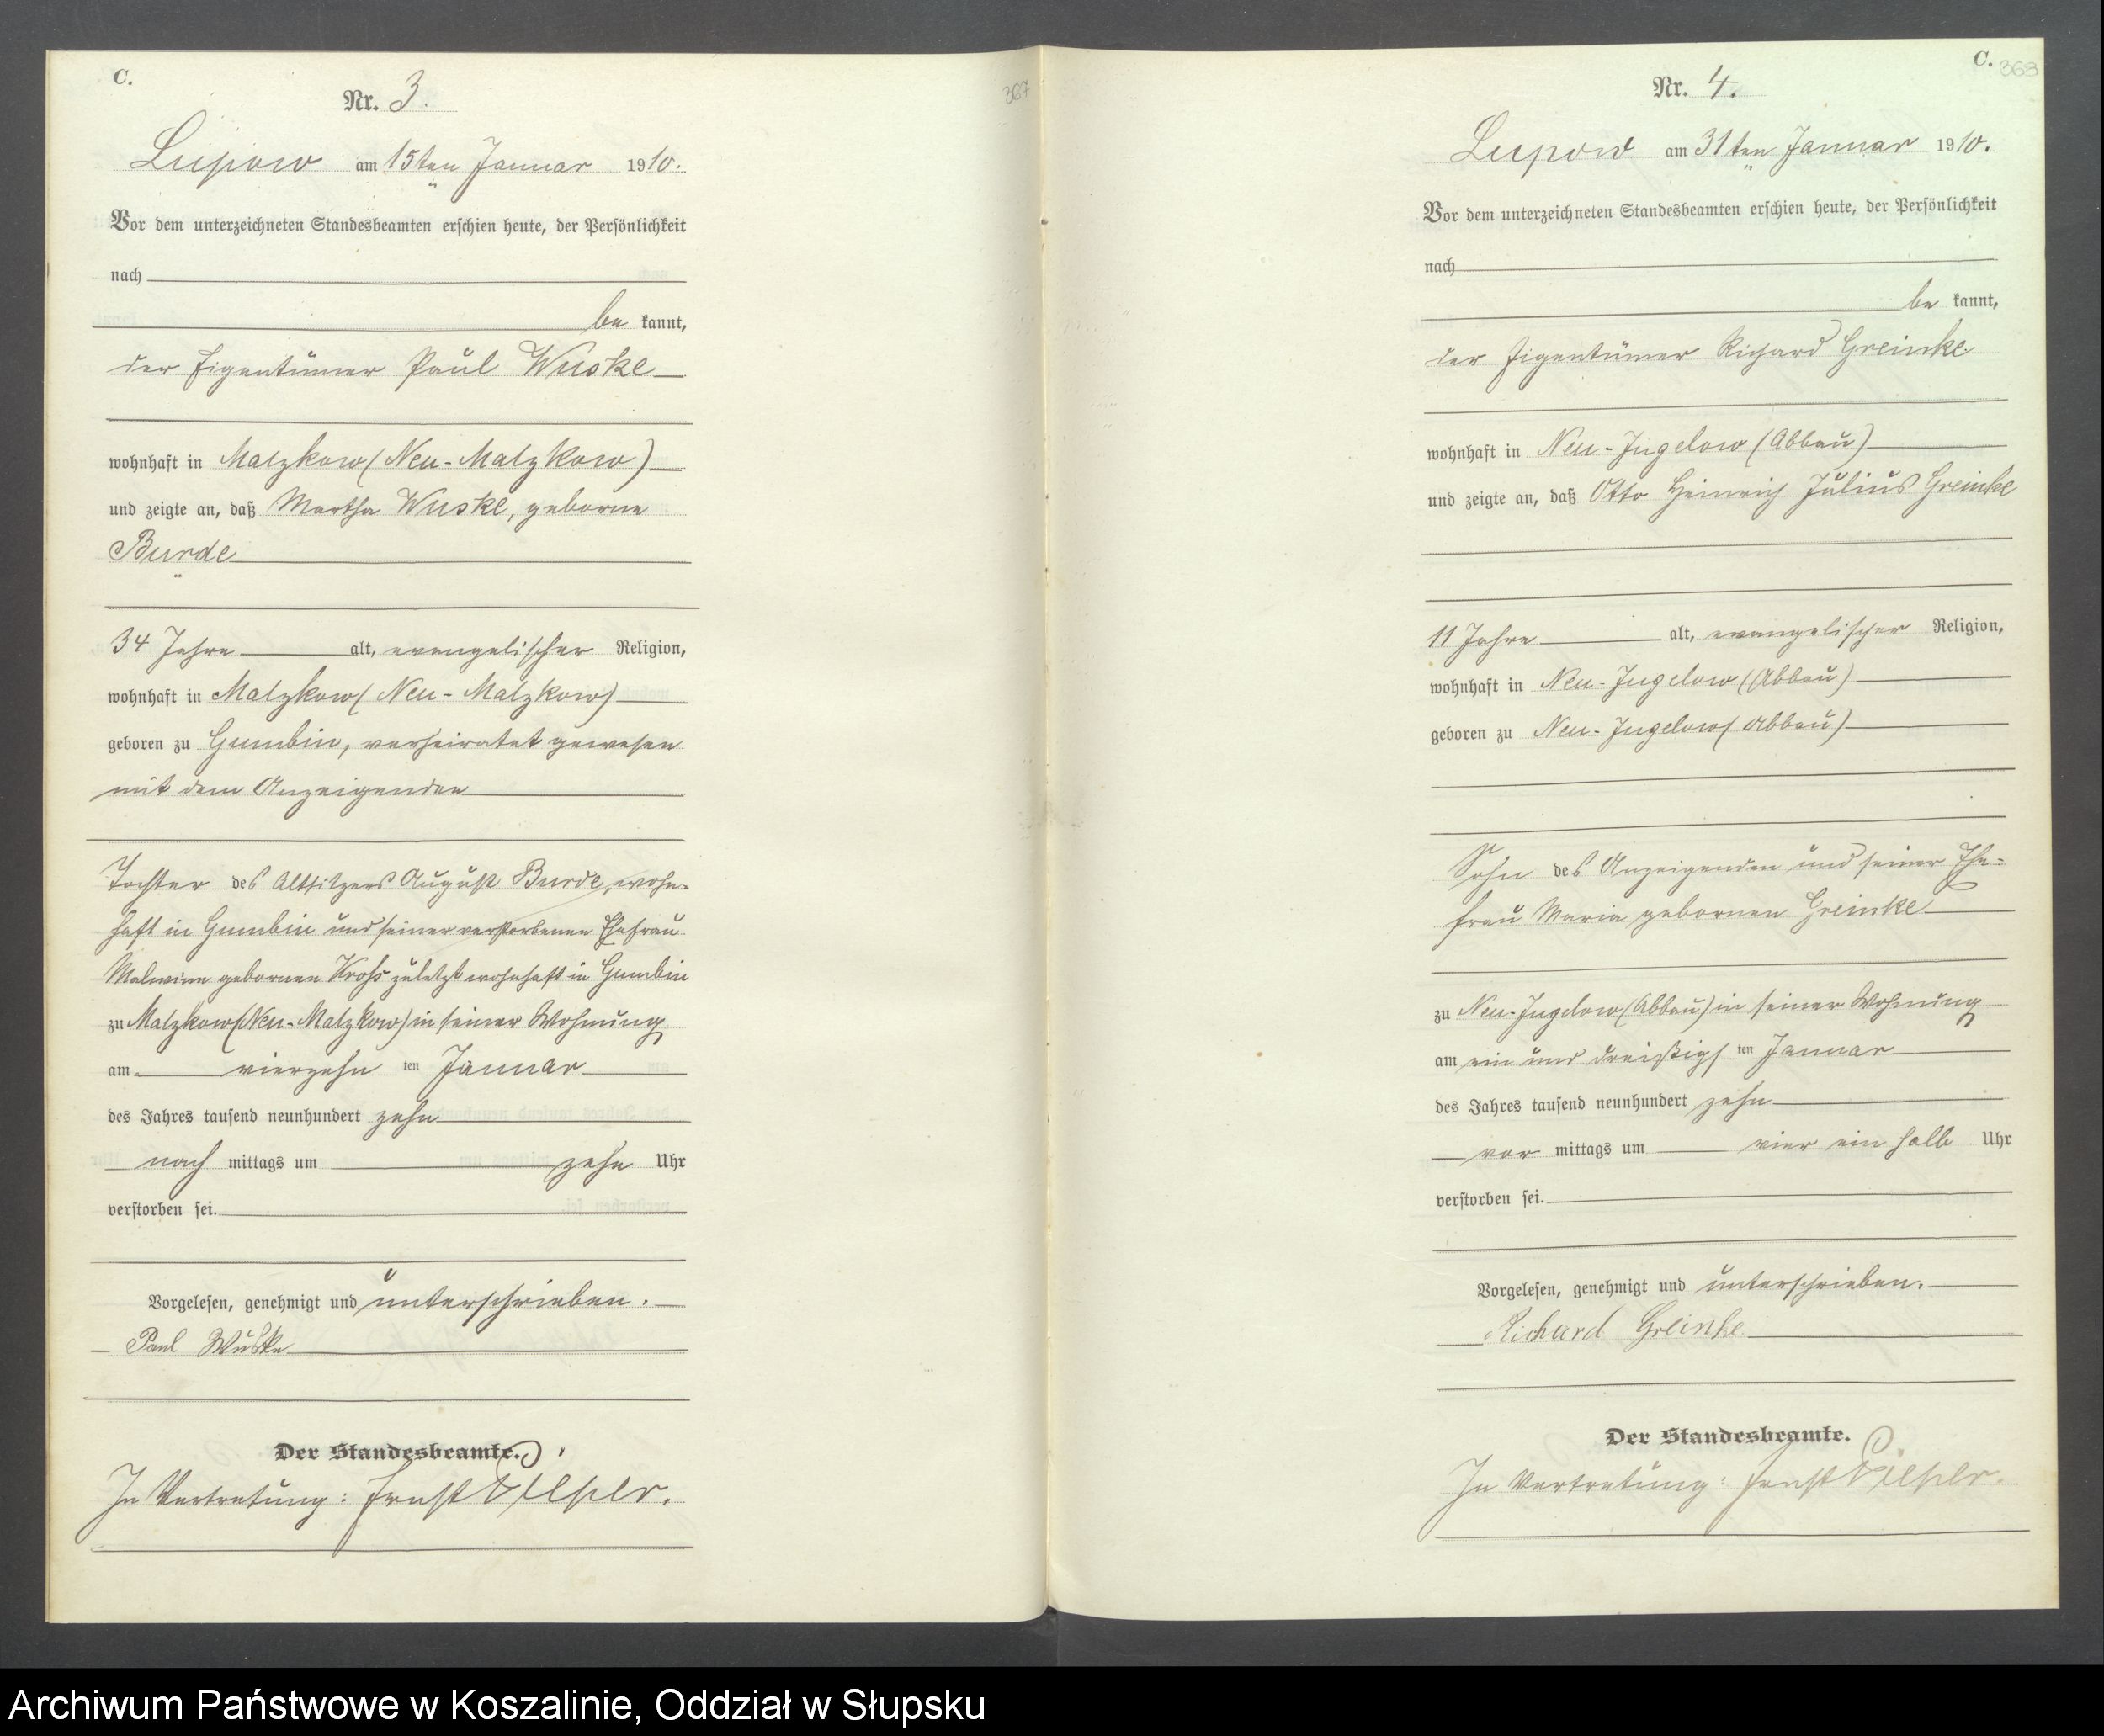 C.
367
Nr. 3.
Lupow am 15ten Januar 1910.
Vor dem unterzeichneten Standesbeamten erschien heute, der Persönlichkeit
nach
be kannt,
der Eigentümer Paul Wuske
wohnhaft in Malzkow (Neu-Malzkow)
und zeigte an, daß Martha Wuske, geborne
Burde
34 Jahre alt, evangelischer Religion,
wohnhaft in Malzkow (Neu-Malzkow)
geboren zu Gumbin, verheiratet gewesen
mit dem Anzeigenden
Tochter des Altsitzers August Burde, wohn-
haft in Gumbin und seiner verstorbenen Ehefrau
Malwine gebornen Krohs zuletzt wohnhaft in Gumbin
zu Malzkow (Neu-Malzkow) in seiner Wohnung
am vierzehn ten Januar
des Jahres tausend neunhundert zehn
nach mittags um zehn Uhr
verstorben sei.
Vorgelesen, genehmigt und unterschrieben.
Paul Wuske
Der Standesbeamte.
In Vertretung: Ernst
C. 368
Nr. 4.
Lupow am 31ten Januar 1910.
Vor dem unterzeichneten Standesbeamten erschien heute, der Persönlichkeit
nach
be kannt,
der Eigentümer Richard Greinke
wohnhaft in Neu-Jugelow (Abbau)
und zeigte an, daß Otto Heinrich Julius Greinke
11 Jahre alt, evangelischer Religion,
wohnhaft in Neu-Jugelow (Abbau)
geboren zu Neu-Jugelow (Abbau)
Sohn des Anzeigenden und seiner Ehe-
frau Maria gebornen Greinke
zu Neu-Jugelow (Abbau) in seiner Wohnung
am ein und dreißigs ten Januar
des Jahres tausend neunhundert zehn
vor mittags um vier ein halb Uhr
verstorben sei.
Vorgelesen, genehmigt und unterschrieben.
Richard Greinke
Der Standesbeamte.
In Vertretung: Ernst
Archiwum Państwowe w Koszalinie, Oddział w Słupsku